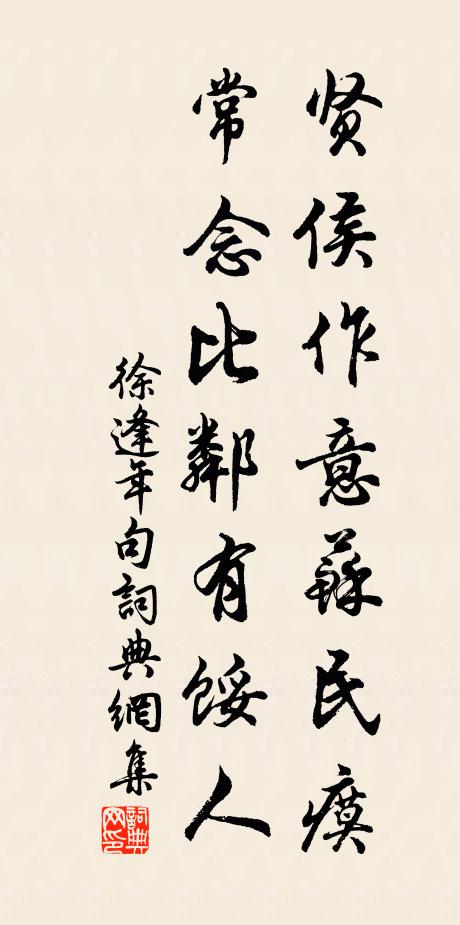 贤侯作意蘇民瘼
常念比鄰有馁人
徐逢年句詞典網集
詞典网印